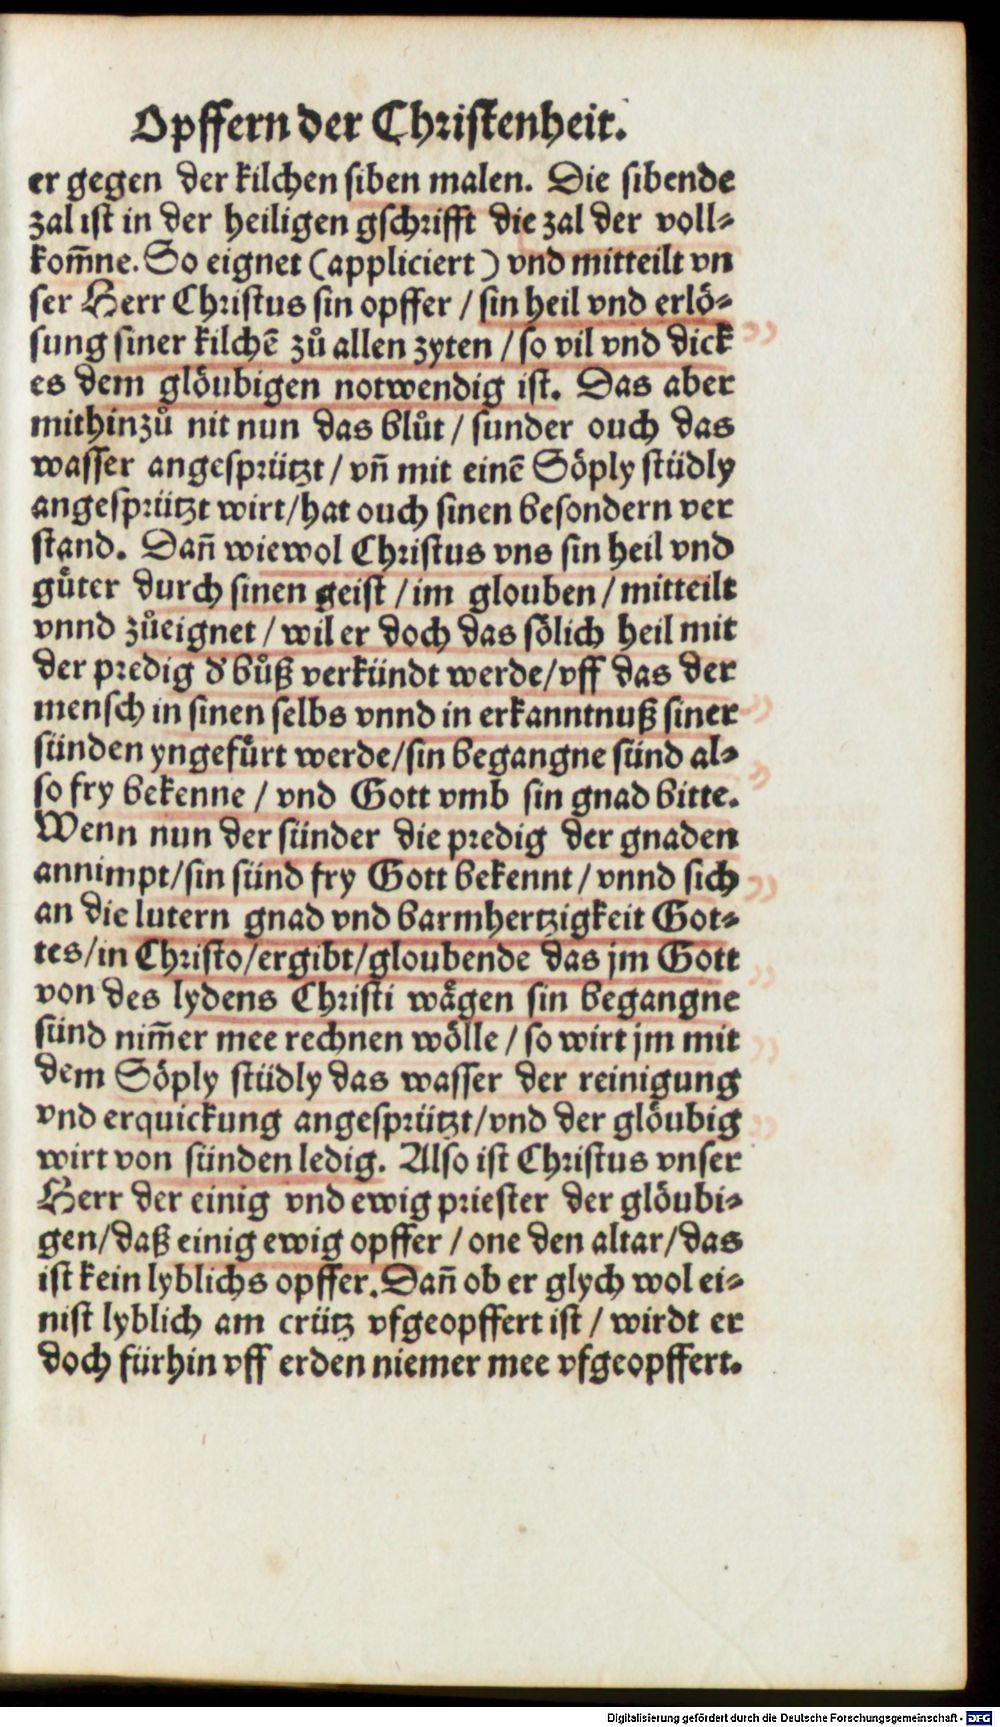 Opffern der Christenheit.
er gegen der kilchen siben malen. Die sibende
zal ist in der heiligen gschrifft die zal der voll⸗
kom̃ne. So eignet (appliciert) vnd mitteilt vn
ser Herr Christus sin opffer / sin heil vnd erlö⸗
sung siner kilchẽ zů allen zyten / so vil vnd dick
es dem glöubigen notwendig ist. Das aber
mithinzů nit nun das blůt / sunder ouch das
wasser angesprützt / vñ mit einẽ Söply stüdly
angesprützt wirt/hat ouch sinen besondern ver
stand. Dañ wiewol Christus vns sin heil vnd
gůter durch sinen geist / im glouben / mitteilt
vnnd zůeignet / wil er doch das sölich heil mit
der predig d' bůß verkündt werde/vff das der
mensch in sinen selbs vnnd in erkanntnuß siner
sünden yngefůrt werde/sin begangne sünd al⸗
so fry bekenne / vnd Gott vmb sin gnad bitte.
Wenn nun der sünder die predig der gnaden
annimpt/sin sünd fry Gott bekennt / vnnd sich
an die lutern gnad vnd barmhertzigkeit Got⸗
tes/in Christo/ergibt/gloubende das jm Gott
von des lydens Christi wägen sin begangne
sünd nim̃er mee rechnen wölle / so wirt jm mit
dem Söply stüdly das wasser der reinigung
vnd erquickung angesprützt/vnd der glöubig
wirt von sünden ledig. Also ist Christus vnser
Herr der einig vnd ewig priester der glöubi⸗
gen/daß einig ewig opffer / one den altar/das
ist kein lyblichs opffer. Dañ ob er glych wol ei⸗
nist lyblich am crütz vfgeopffert ist / wirdt er
doch fürhin vff erden niemer mee vfgeopffert.
Digitalisierung gefördert durch die Deutsche Forschungsgemeinschaft - DFG